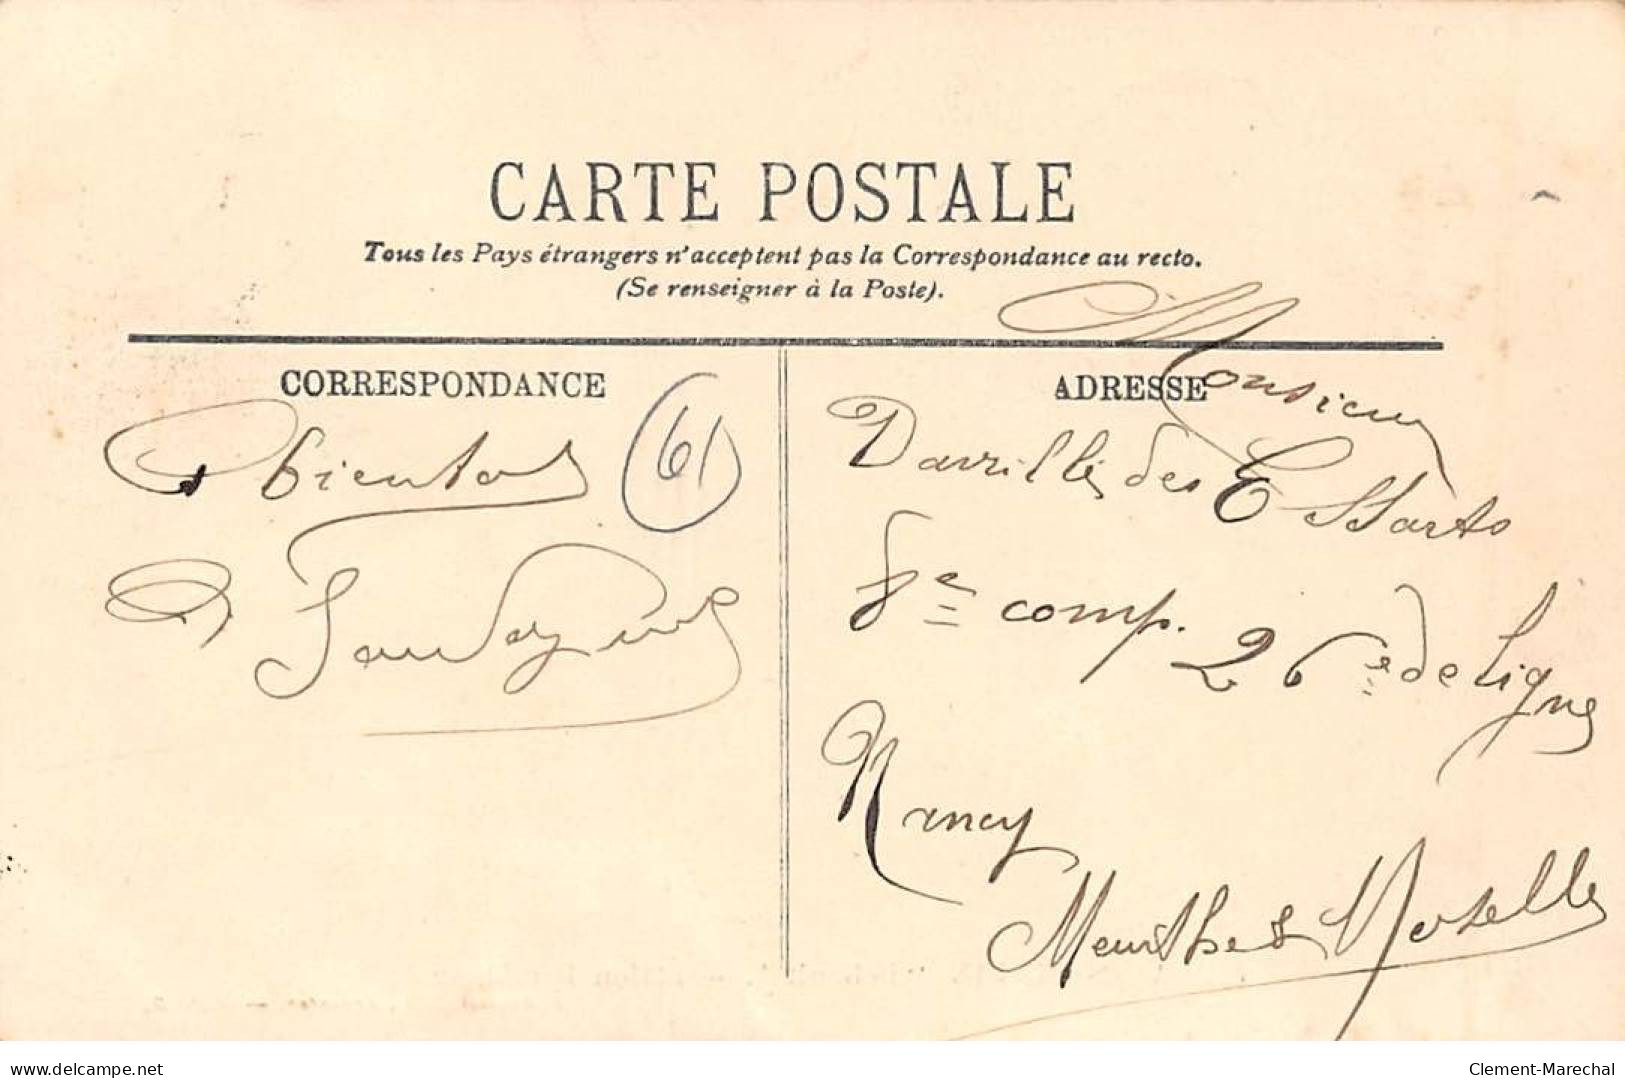 CARTE POSTALE
Tous les Pays étrangers n'acceptent pas la Correspondance au recto.
(Se renseigner à la Poste).
CORRESPONDANCE
61
bientot
ADRESSE
Monsieur
des Essarts
8e comp. 26e de Ligne
Nancy
Meurthe & Moselle
www.delcampe.net
Clement-Marechal